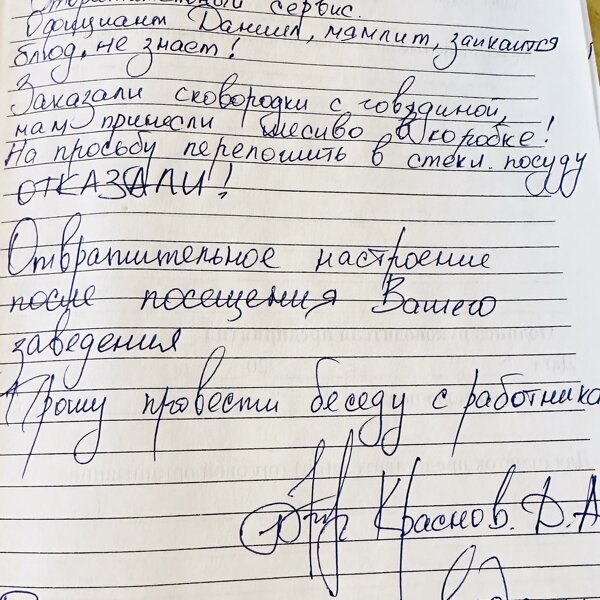 Отвратительный сервис.
Официант Даниил, мямлит, заикается
блюд, не знает!
Заказали сковородки с говядиной,
нам принесли месиво в коробке!
На просьбу переложить в стекл. посуду
ОТКАЗАЛИ!
Отвратительное настроение
после посещения Вашего
заведения
Прошу провести беседу с работника
Краснов. Д.А